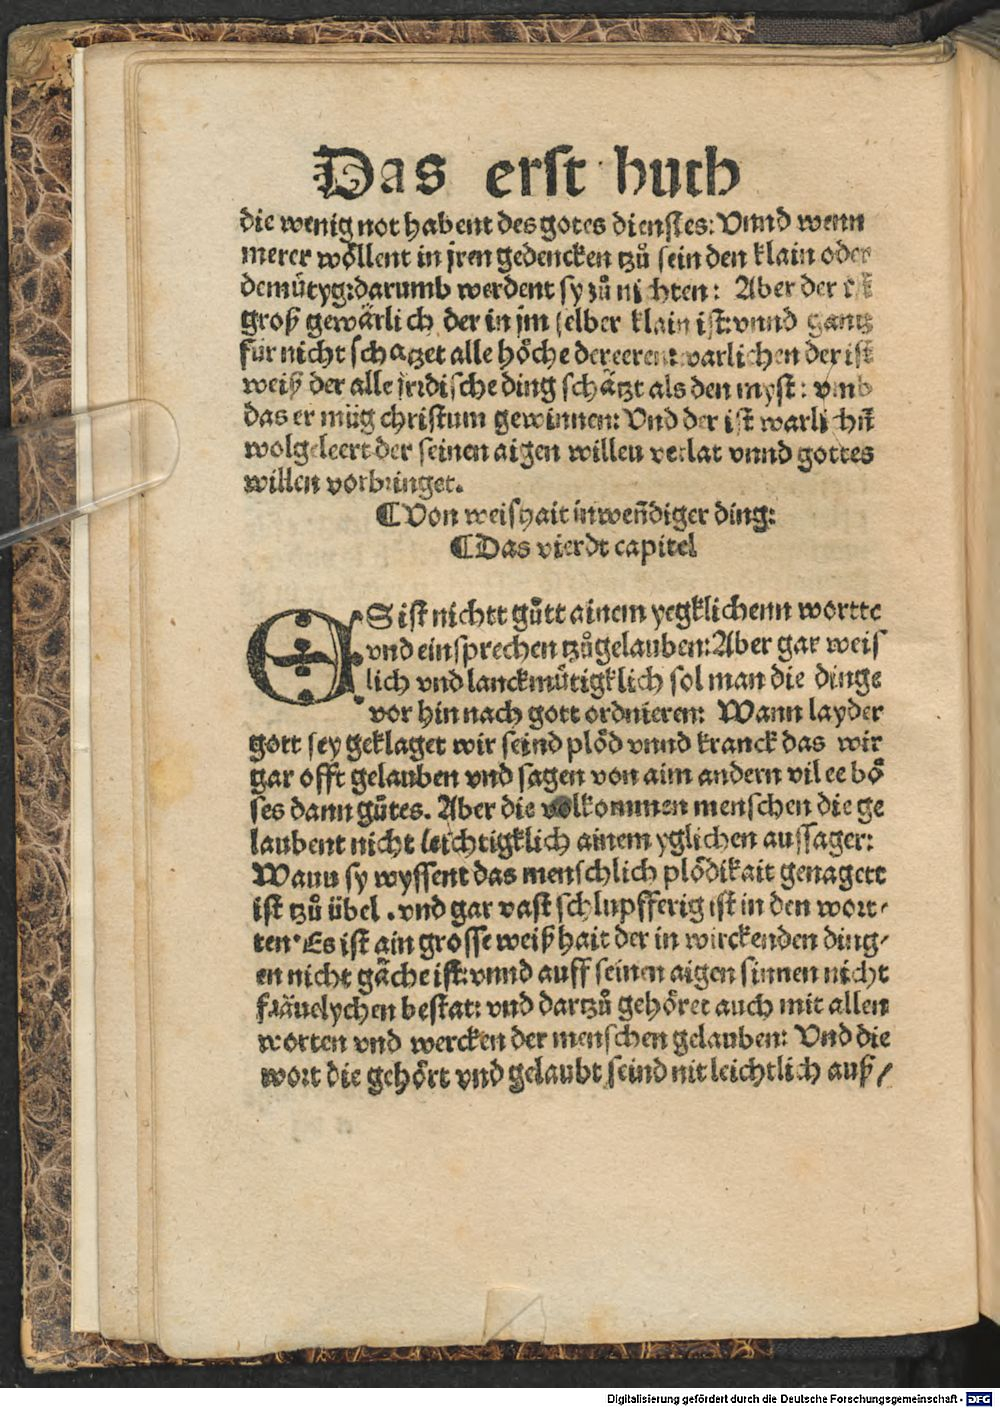 Das erst buch
die wenig not habent des gotes dienstes: Vnnd wenn
merer wöllent in jren gedencken tzů sein den klain oder
demütyg: darumb werdent sy zů nichten: Aber der ist
groß gewärlich der in jm selber klain ist: vnnd gantz
für nicht schatzet alle höche der eeren: warlichen der ist
weiß der alle jrdische ding schätzt als den myst: vmb
das er müg christum gewinnen: Vnd der ist
wolgeleert der seinen aigen willen verlat vnnd gottes
willen vorbringet.
¶ Von weishait inweñdiger ding:
¶ Das vierdt capitel
ES ist nichtt gůtt ainem yegklichenn wortte
vnd einsprechen tzůgelauben: Aber gar weis
lich vnd lanckmütigklich sol man die dinge
vor hin nach gott ordnieren: Wann layder
gott sey geklaget wir seind plöd vnnd kranck das wir
gar offt gelauben vnd sagen von aim andern vil ee bö
ses dann gůtes. Aber die volkommen menschen die ge
laubent nicht leichtigklich ainem yglichen aussager:
Wann sy wyssent das menschlich plödikait genagett
ist tzů übel . vnd gar vast schlupfferig ist in den wort⸗
ten· Es ist ain grosse weißhait der in wirckenden ding⸗
en nicht gäche ist: vnnd auff seinen aigen sinnen nicht
fräuelychen bestat: vnd dartzů gehöret auch mit allen
worten vnd wercken der menschen gelauben: Vnd die
wort die gehört vnd gelaubt seind nit leichtlich auß⸗
Digitalisierung gefördert durch die Deutsche Forschungsgemeinschaft - DFG